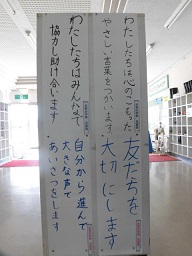 わたしたちは心のこもった
やさしい言葉をつかいます。
友だちを
大切にします
わたしたちはみんなで
協力し助け合います
自分から進んで
大きな声で
あいさつをします